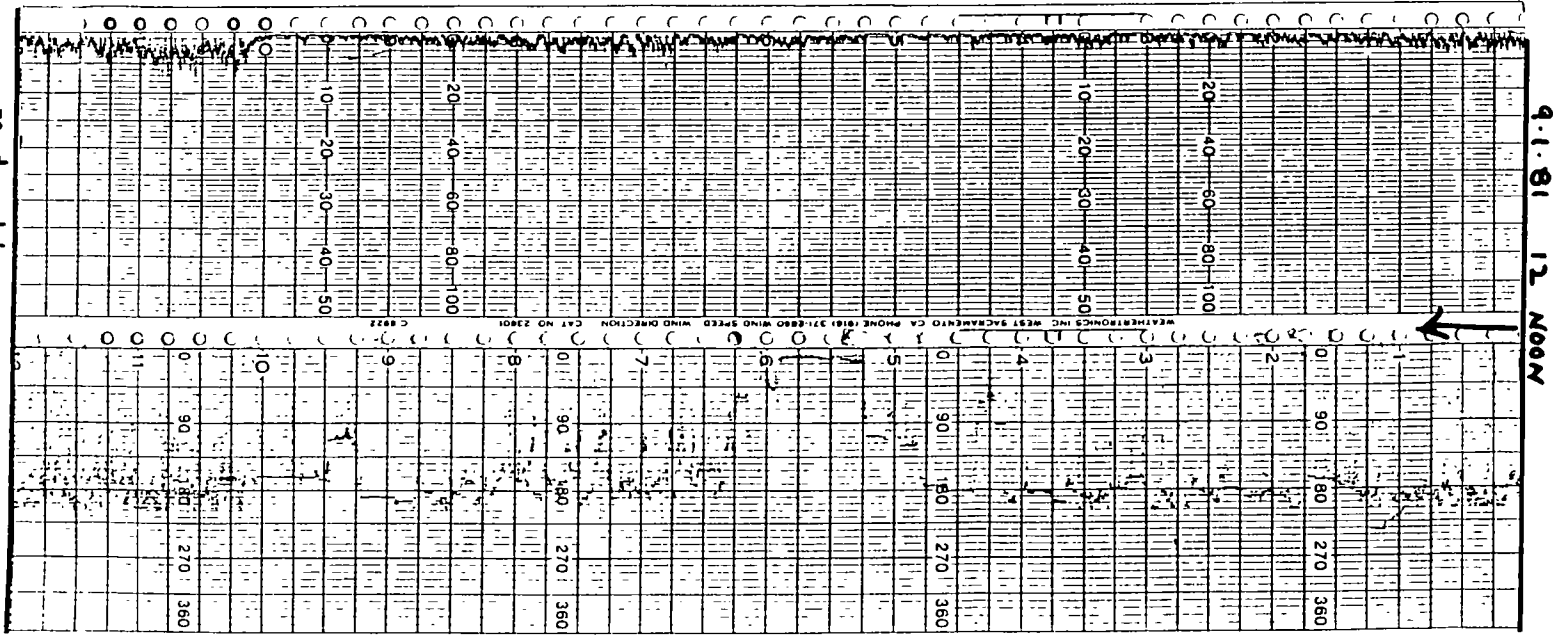 9.1.81 12 NOON
10 20 30 40 50
20 40 60 80 100
10 20 30 40 50
20 40 60 80 100
WEATHERTRONICS INC. WEST SACRAMENTO CA PHONE (916) 371-2660 WIND SPEED WIND DIRECTION CAT NO 23801
C 8922
12 11 10 9 8 7 6 5 4 3 2 1
0 90 180 270 360
0 90 180 270 360
0 90 180 270 360
0 90 180 270 360